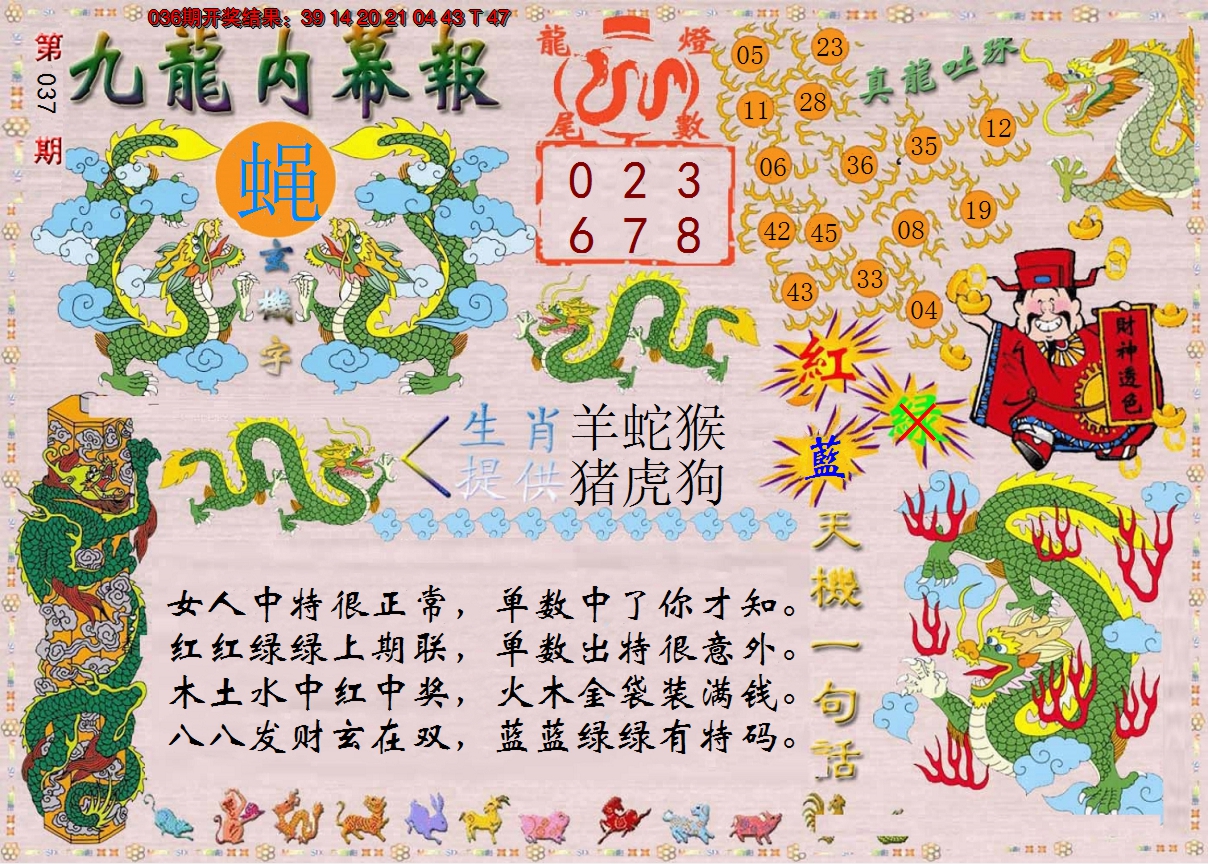 036期开奖结果：39 14 20 21 04 43 T 47
第037期
九龍内幕報
蝇
玄機字
龍燈
尾數
0 2 3
6 7 8
真龍吐珠
05
23
11
28
12
35
06
36
19
42
45
08
33
43
04
財神透色
紅
绿
藍
生肖提供
羊蛇猴
猪虎狗
天機一句話
女人中特很正常，单数中了你才知。
红红绿绿上期联，单数出特很意外。
木土水中红中奖，火木金袋装满钱。
八八发财玄在双，蓝蓝绿绿有特码。